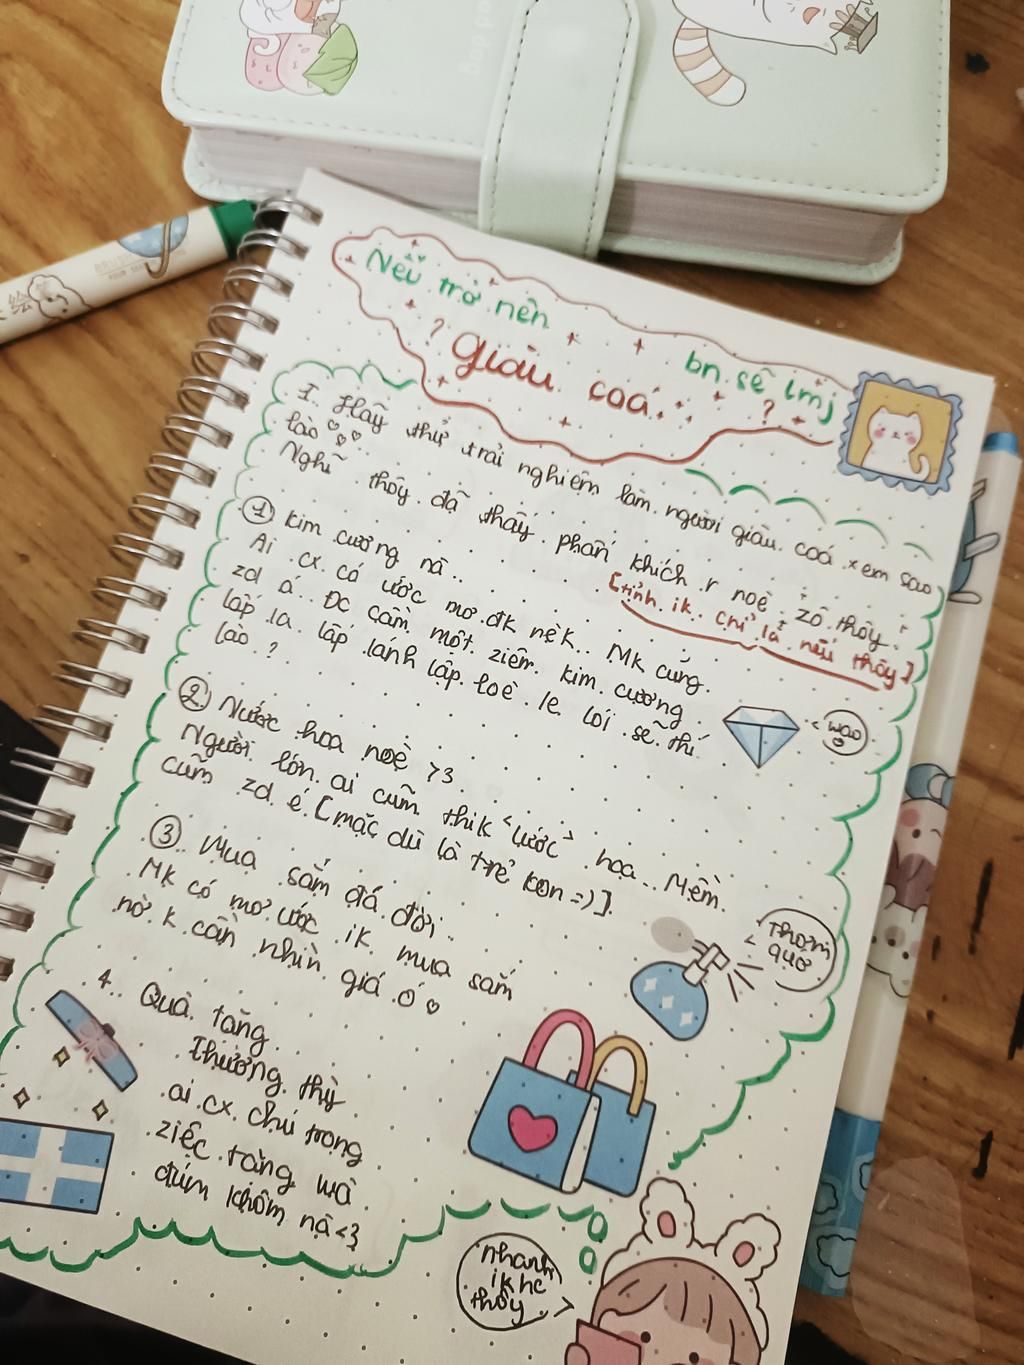 Nếu trở nên
giàu coá
bn sẽ lmj
?
?
I. Hãy thử trải nghiệm làm người giàu coá xem sao
lào
Nghĩ thôy đã thấy phấn khích r noè zô thôy
[tỉnh ik chỉ là nếu thôy]
① Kim cương nã..
Ai cx có ước mơ đk nèk.. Mk cúng
zd á.. Đc cầm một ziêm kim cương
lấp la lấp lánh lập loè le lói sẽ thí
lào ?
wao
② Nước hoa noè >3
Người lớn ai cũm thik "ước" hoa.. Mềm
cũm zd é.[mặc dù là trẻ kon =)].
Thơm
quớ
③ Mua sắm đá đời
Mk có mơ ước ik mua sắm
nờ k cần nhìn giá ó
4.. Quà tặng
Thường thỳ
ai cx chú trọng
ziệc tằng wà
đúm khôm nà <3
nhanh
ik hc
thôy